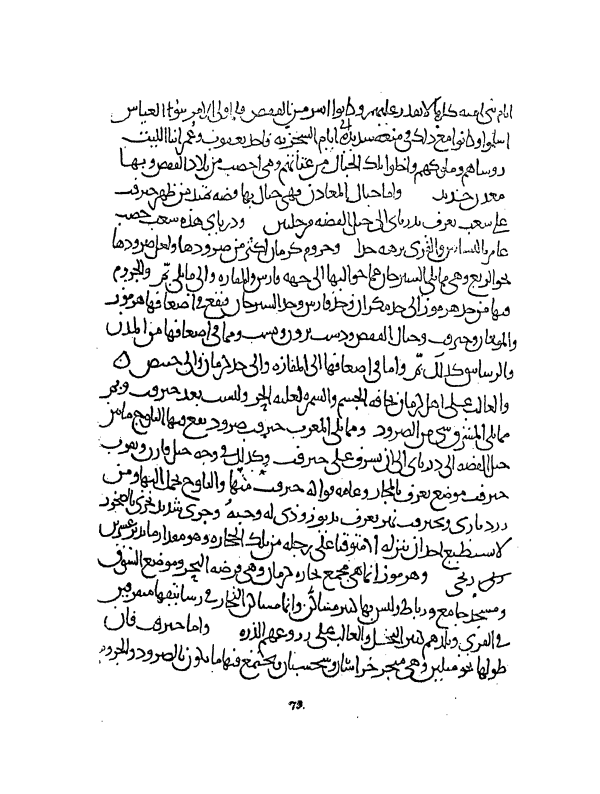 ايام بني اميه كلها لا يقدر عليهم وكانوا اسر من القفص فلما ولي الامر بنو العباس
اسلموا وكانوا مع ذلك في منعه شديده الى ايام السجزيه فاخذ يعقوب وعمرو ابنا الليث
روساهم وملوكهم واخلوا تلك الجبال من عتاتهم وهي اخصب من بلاد القفص وبها
معدن حديد واما جبال المعادن فهي جبال بها فضه تمتد من ظهر جيرفت
على شعب يعرف بدرباي الى جبل الفضه مرحلتين ودرباي هذه شعب خصب
عامر بالبساتين والقرى نزهه جدا وجروم كرمان اكثر من صرودها ولعل صرودها
نحو الربع وهي مما يلي السيرجان فما حواليها الى جهه فارس والمفازه والى ما يلي بم والجروم
فيها من حد هرموز الى حد مكران وحد فارس وحد السيرجان فيقع في اضعافها هرموز
وجيرفت وجبال القفص ودشت وما في اضعافها من المدن
والرساتيق كذلك بم واما في اضعافها الى المفازه والى حد كرمان والى خبيص
والغالب على اهل كرمان نحافه الجسم والسمره لغلبه الحر وليست بعد جيرفت وبم
مما يلي المشرق شي من الصرود ومما يلي المغرب جيرفت صرود يقع فيها الثلوج ما بين
جبل الفضه الى درباي الى ان يشرف على جيرفت وكذلك في وجه جبل قارن وبقرب
جيرفت موضع يعرف وعامه فواكه جيرفت منها والثلوج تحمل اليها ومن
درباري وبجيرفت نهر يعرف بديوروذ له وجبه وجري شديد يجري بالصخور
لا يستطيع احد ان ينزله الا متوقيا على رجله من تلك الحجاره وهو مقدار ما يدير عشرين
رحى وهرموز انما هي مجمع تجاره كرمان وهي فرضه البحر وموضع السوق
ومسجد جامع ورباط وليس بها كثير مساكن وانما مساكن التجار في رساتيقها متفرقين
في القرى وبلدهم كثير النخيل والغالب على زروعهم الذره واما جيرفت فان
طولها نحو ميلين وهي متجر خراسان وسجستان ويجتمع فيها ما يكون بالصرود والجروم
73.